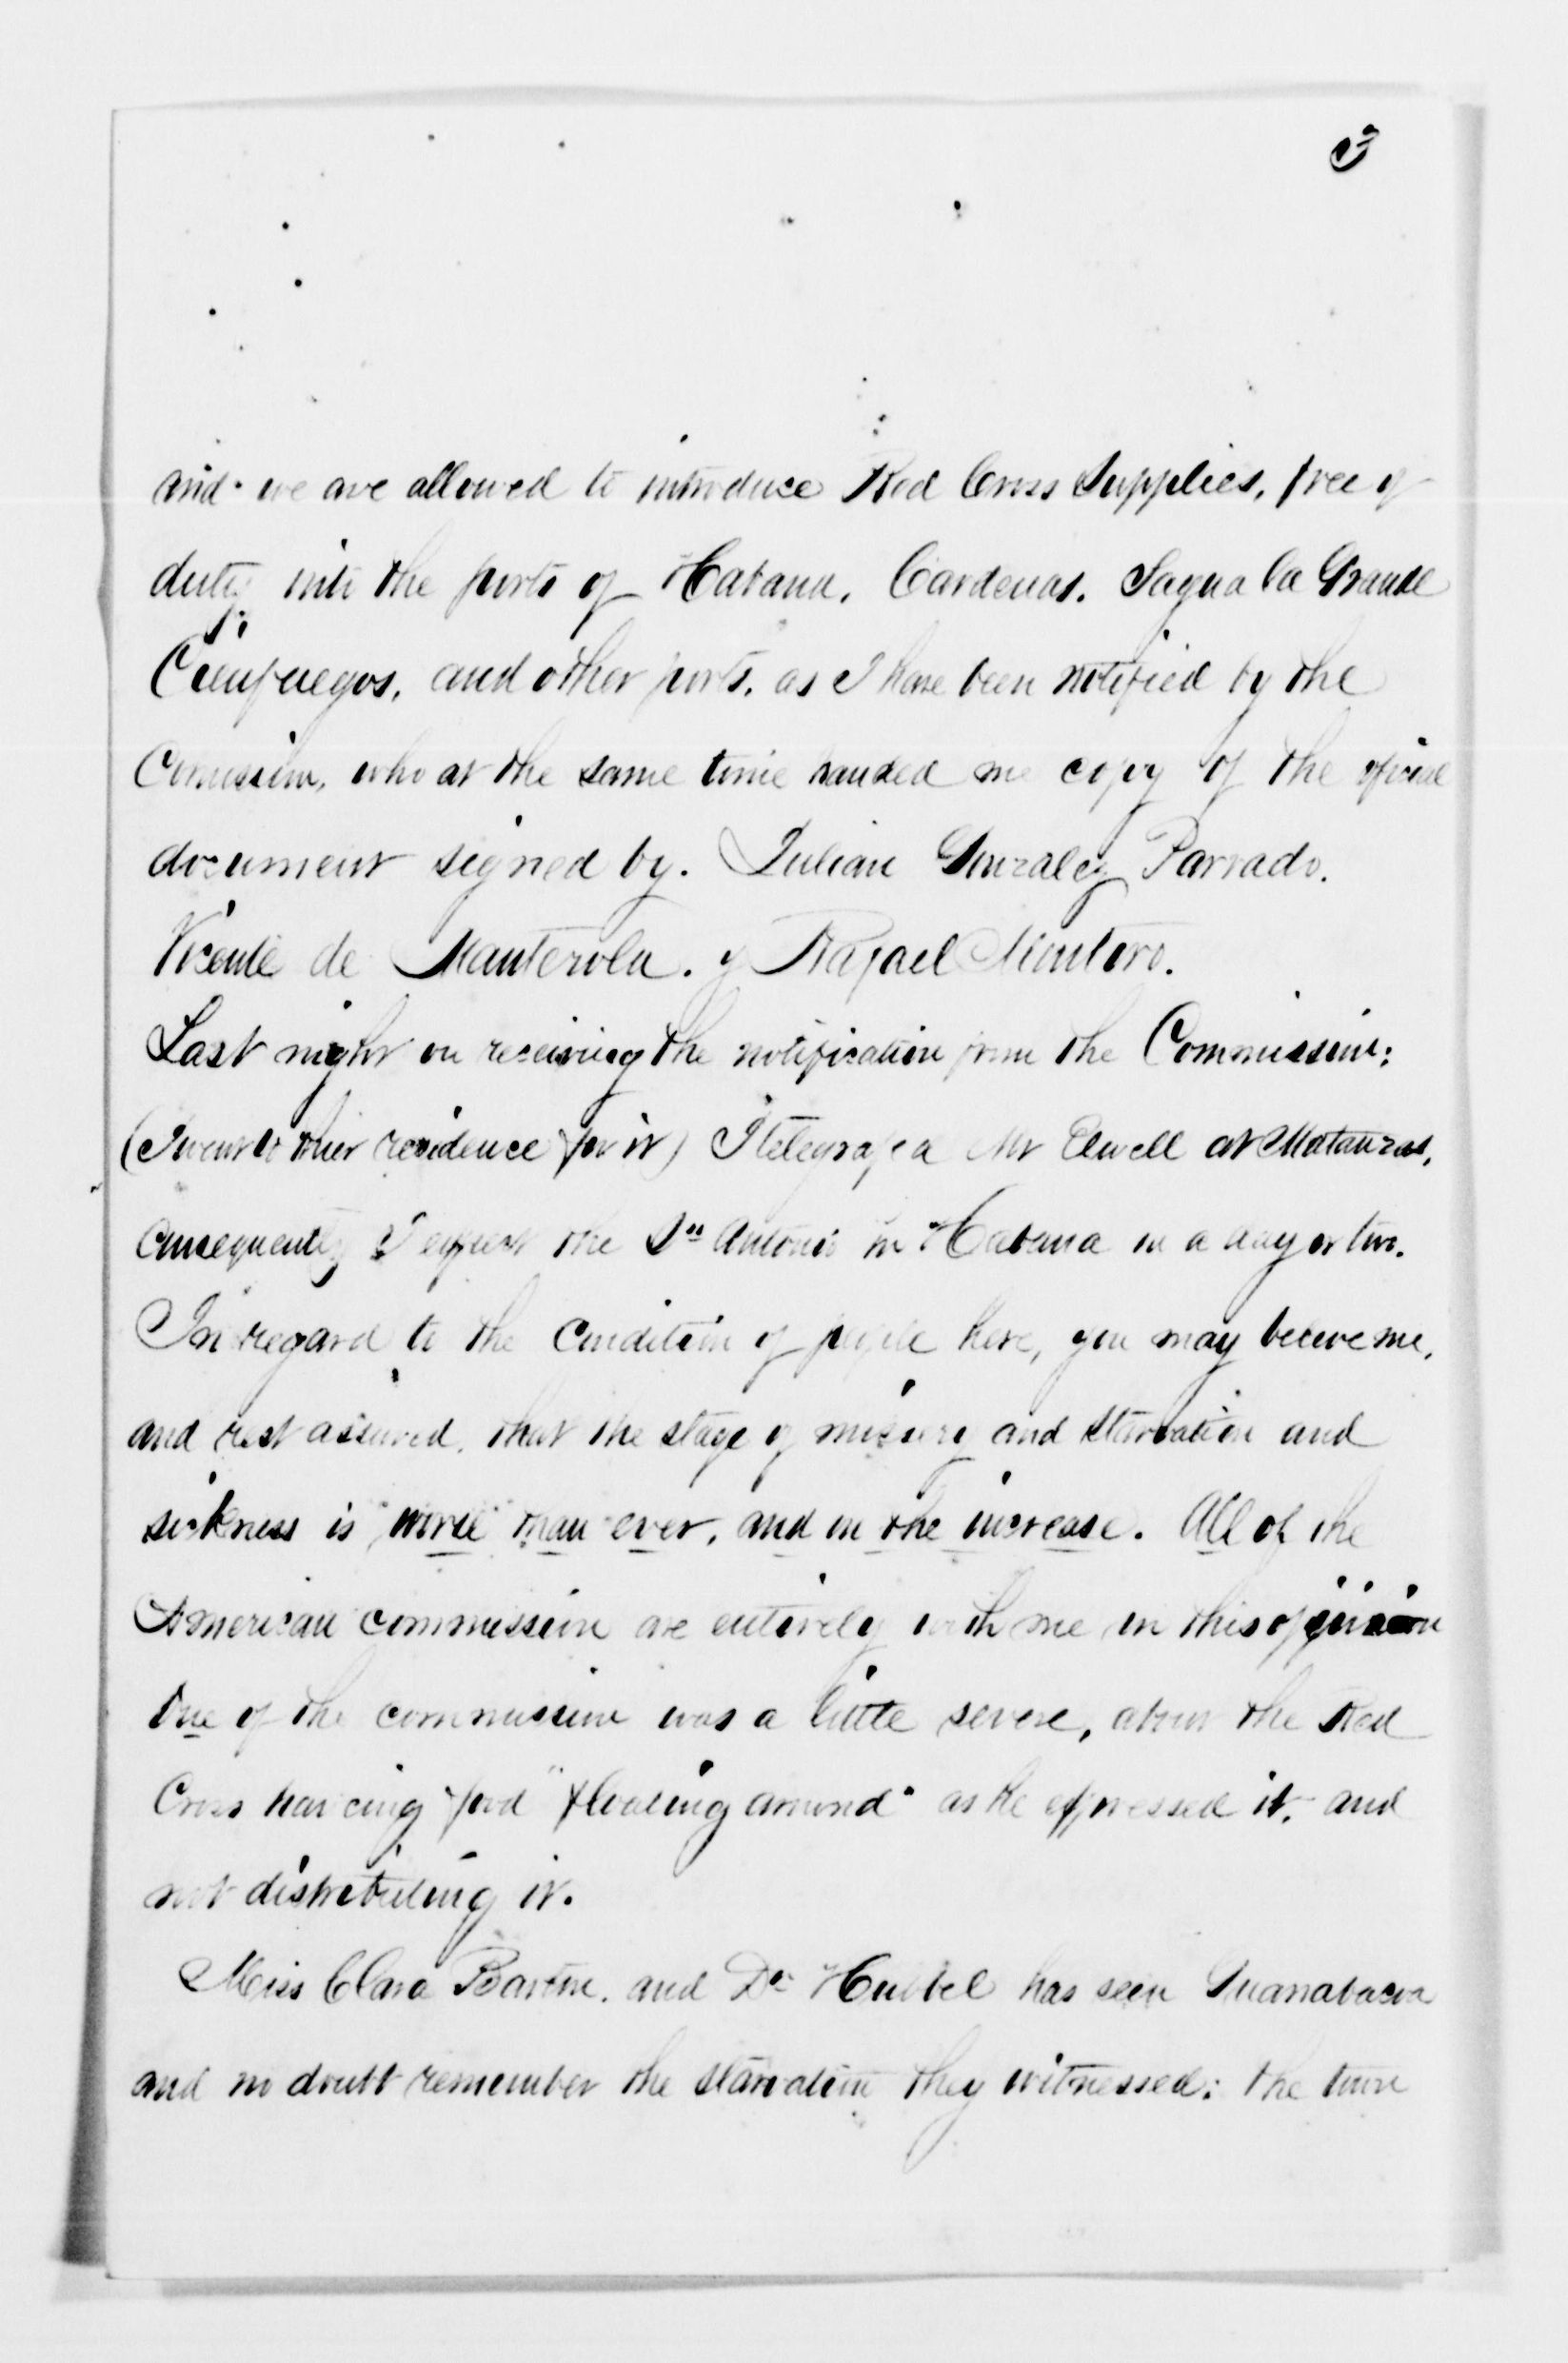 3
and we are allowed to introduce Red Cross Supplies, free of
duty into the ports of Habana, Cardenas. Sagua la Grande
Cienfuegos, and other ports, as I have been notified by the
Comission, who at the same time handed me copy of the oficial
document signed by. Julian Gonzalez Parrado.
Vicente de Manterola. y Rafael Montoro.
Last night on receiving the notification from the Commission:
(I went to their residence for it) I telegrafed Mr Elwell at Matanzas,
Consequently I expect the Sn Antonio in Habana in a day or two.
In regard to the Condition of people here, you may beleve me,
and rest assured, that the stage of misery and starvation and
sickness is "worse" than ever, and on the increase. All of the
American commission are entirely with me in this opinion
One of the commission was a little severe, about the Red
Cross having food "floating around" as he expressed it, and
not distributing it.
Miss Clara Barton. and Dr Hubbel has seen Guanabacoa
and no doubt remember the starvation they witnessed: the town